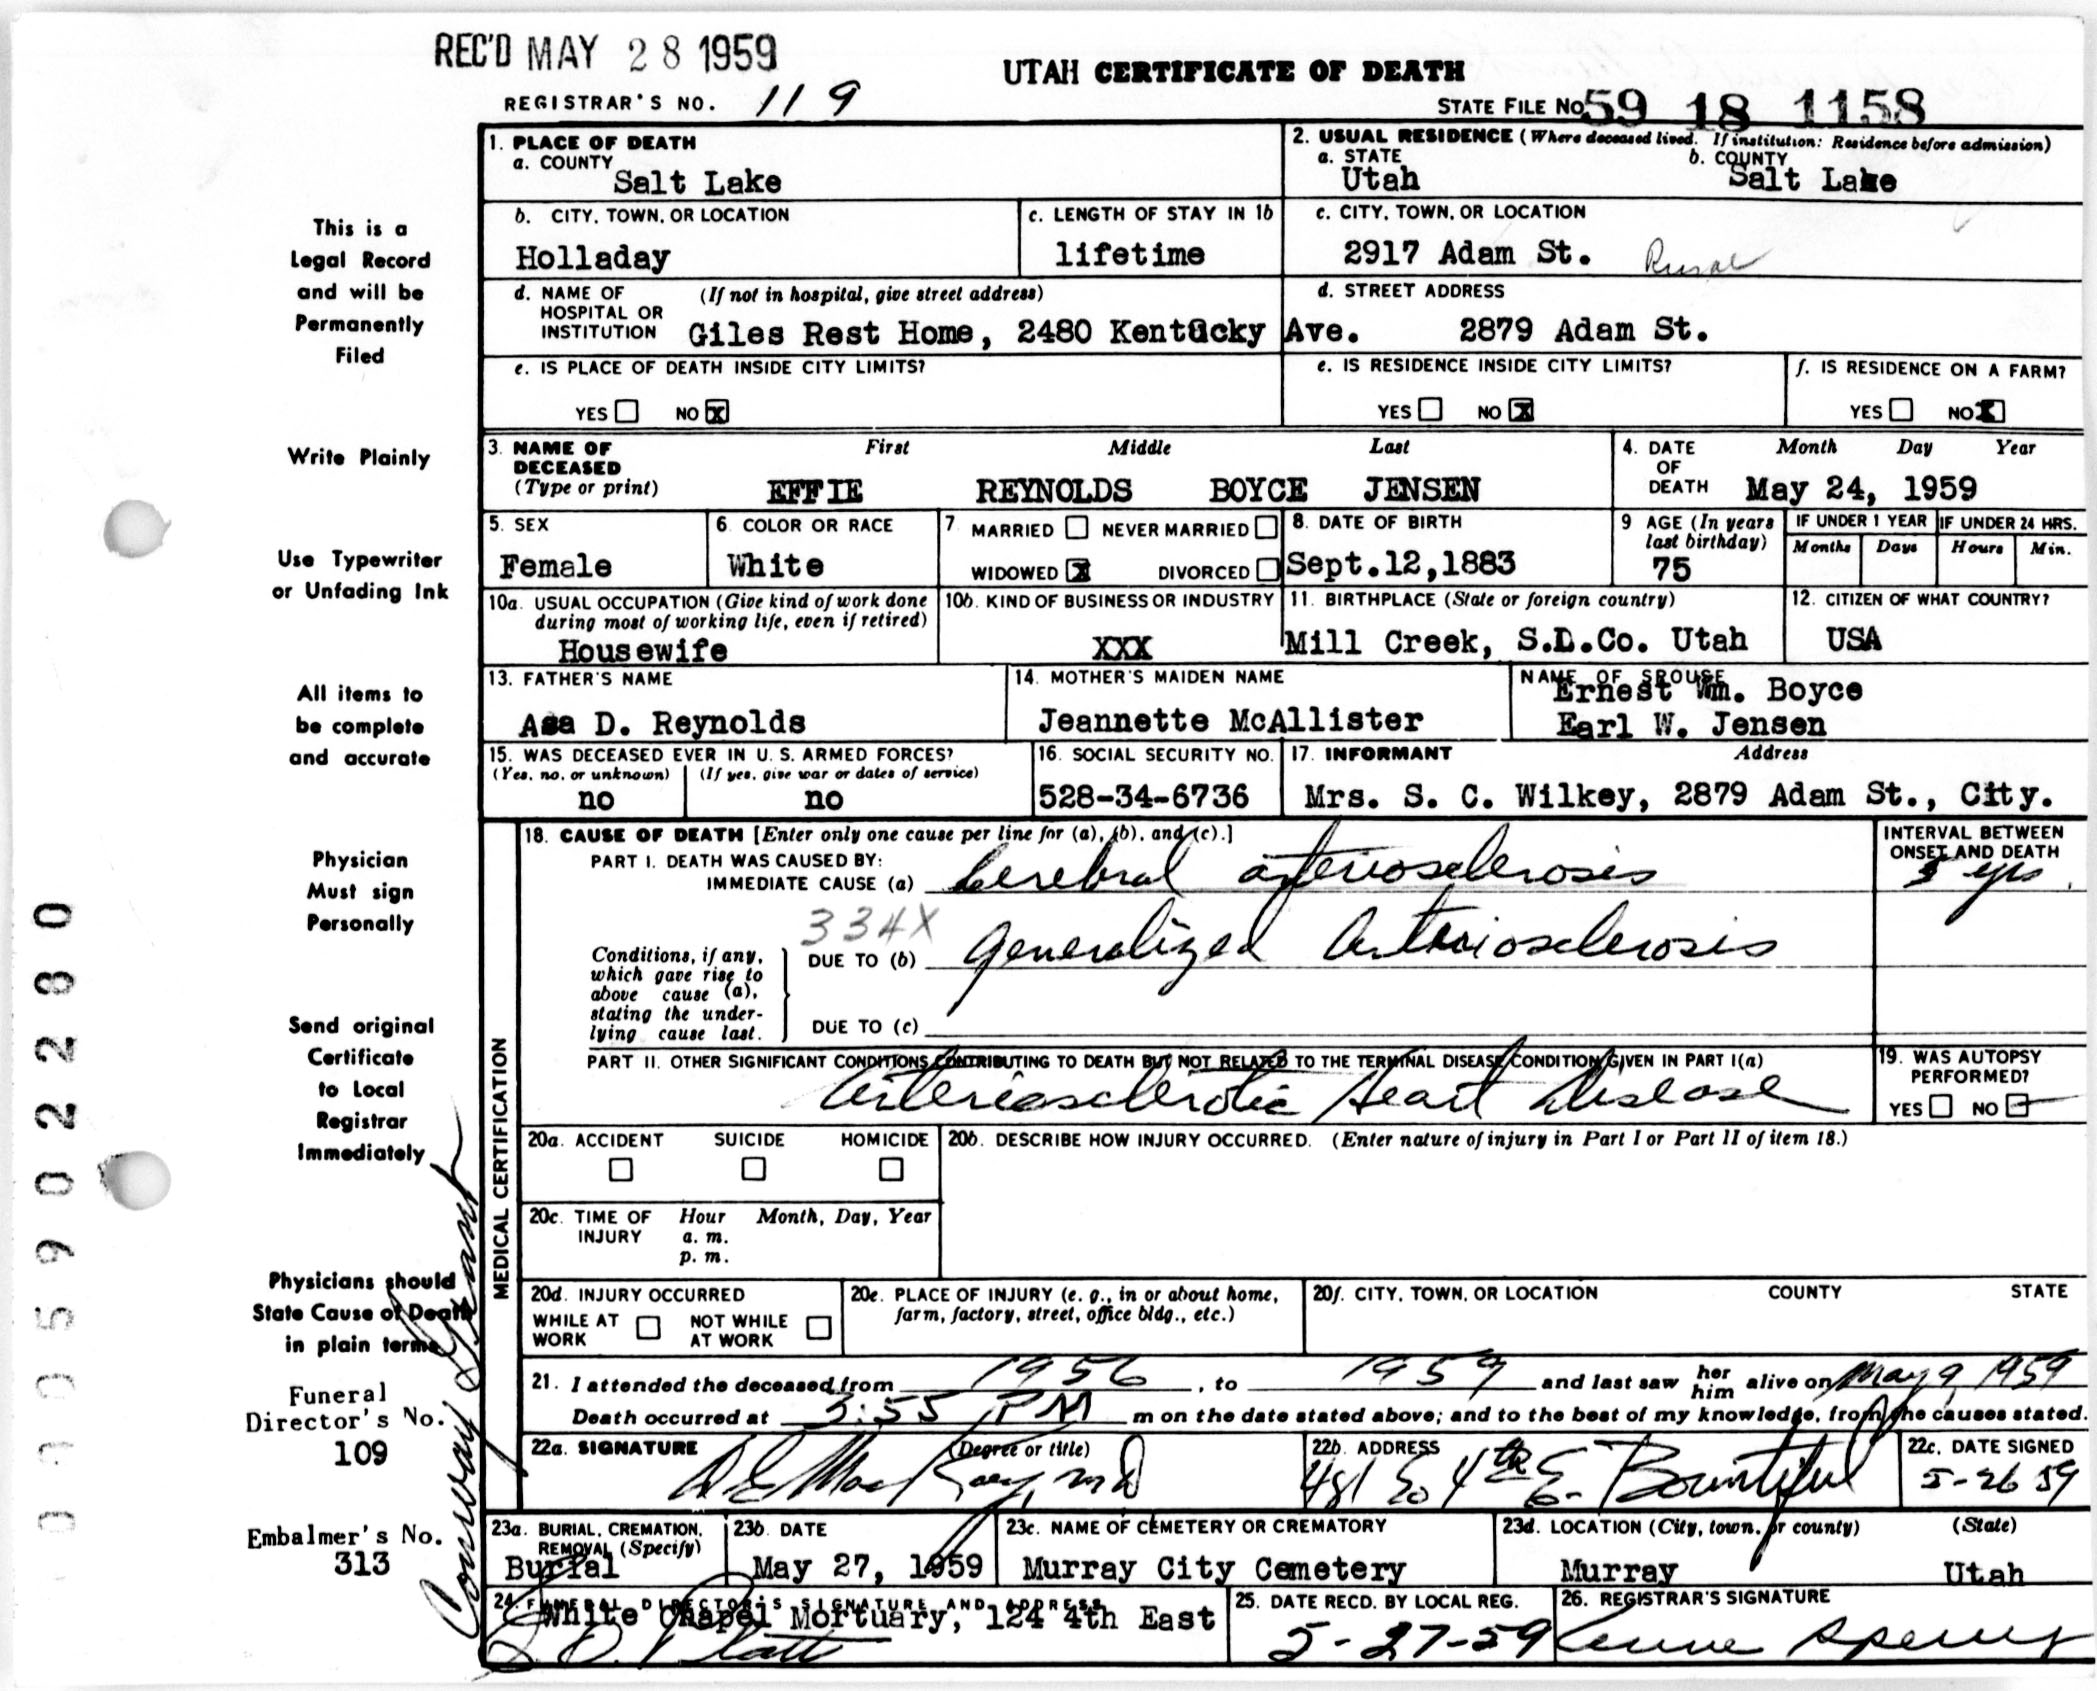 REC'D MAY 28 1959
UTAH CERTIFICATE OF DEATH
REGISTRAR'S NO. 119
STATE FILE NO. 59 18 1158
This is a
Legal Record
and will be
Permanently
Filed
Write Plainly
Use Typewriter
or Unfading Ink
All items to
be complete
and accurate
Physician
Must sign
Personally
Send original
Certificate
to Local
Registrar
Immediately
Physicians should
State Cause of Death
in plain terms
Funeral
Director's No.
109
Embalmer's No.
313
Conway
005902280
1. PLACE OF DEATH
a. COUNTY
Salt Lake
2. USUAL RESIDENCE (Where deceased lived. If institution: Residence before admission)
a. STATE
Utah
b. COUNTY
Salt Lake
b. CITY, TOWN, OR LOCATION
Holladay
c. LENGTH OF STAY IN 1b
lifetime
c. CITY, TOWN, OR LOCATION
2917 Adam St. Rural
d. NAME OF HOSPITAL OR INSTITUTION (If not in hospital, give street address)
Giles Rest Home, 2480 Kentucky Ave.
d. STREET ADDRESS
2879 Adam St.
e. IS PLACE OF DEATH INSIDE CITY LIMITS?
YES NO X
e. IS RESIDENCE INSIDE CITY LIMITS?
YES NO X
f. IS RESIDENCE ON A FARM?
YES NO X
3. NAME OF DECEASED (Type or print)
First Middle Last
EFFIE REYNOLDS BOYCE JENSEN
4. DATE OF DEATH
Month Day Year
May 24, 1959
5. SEX
Female
6. COLOR OR RACE
White
7. MARRIED NEVER MARRIED
WIDOWED X DIVORCED
8. DATE OF BIRTH
Sept.12,1883
9 AGE (In years last birthday)
75
IF UNDER 1 YEAR
Months Days
IF UNDER 24 HRS.
Hours Min.
10a. USUAL OCCUPATION (Give kind of work done during most of working life, even if retired)
Housewife
10b. KIND OF BUSINESS OR INDUSTRY
XXX
11. BIRTHPLACE (State or foreign country)
Mill Creek, S.L.Co. Utah
12. CITIZEN OF WHAT COUNTRY?
USA
13. FATHER'S NAME
Asa D. Reynolds
14. MOTHER'S MAIDEN NAME
Jeannette McAllister
NAME OF SPOUSE
Ernest Wm. Boyce
Earl W. Jensen
15. WAS DECEASED EVER IN U. S. ARMED FORCES?
(Yes, no, or unknown) (If yes, give war or dates of service)
no no
16. SOCIAL SECURITY NO.
528-34-6736
17. INFORMANT Address
Mrs. S. C. Wilkey, 2879 Adam St., City.
MEDICAL CERTIFICATION
18. CAUSE OF DEATH [Enter only one cause per line for (a), (b), and (c).]
PART I. DEATH WAS CAUSED BY:
IMMEDIATE CAUSE (a) Cerebral arteriosclerosis
INTERVAL BETWEEN ONSET AND DEATH
yrs
334X
Conditions, if any, which gave rise to above cause (a), stating the underlying cause last.
DUE TO (b) generalized Arteriosclerosis
DUE TO (c)
PART II. OTHER SIGNIFICANT CONDITIONS CONTRIBUTING TO DEATH BUT NOT RELATED TO THE TERMINAL DISEASE CONDITION GIVEN IN PART I(a)
Arteriosclerotic Heart Disease
19. WAS AUTOPSY PERFORMED?
YES NO
20a. ACCIDENT SUICIDE HOMICIDE
20b. DESCRIBE HOW INJURY OCCURRED. (Enter nature of injury in Part I or Part II of item 18.)
20c. TIME OF INJURY Hour Month, Day, Year
a. m.
p. m.
20d. INJURY OCCURRED
WHILE AT WORK NOT WHILE AT WORK
20e. PLACE OF INJURY (e. g., in or about home, farm, factory, street, office bldg., etc.)
20f. CITY, TOWN, OR LOCATION COUNTY STATE
21. I attended the deceased from 1956, to 1959 and last saw her him alive on May 9 1959
Death occurred at 3:55 PM m on the date stated above; and to the best of my knowledge, from the causes stated.
22a. SIGNATURE (Degree or title)
MD
22b. ADDRESS
481 So 4th E. Bountiful
22c. DATE SIGNED
5-26 59
23a. BURIAL, CREMATION, REMOVAL (Specify)
Burial
23b. DATE
May 27, 1959
23c. NAME OF CEMETERY OR CREMATORY
Murray City Cemetery
23d. LOCATION (City, town, or county) (State)
Murray Utah
24. FUNERAL DIRECTOR'S SIGNATURE AND ADDRESS
White Chapel Mortuary, 124 4th East
25. DATE RECD. BY LOCAL REG.
5-27-59
26. REGISTRAR'S SIGNATURE